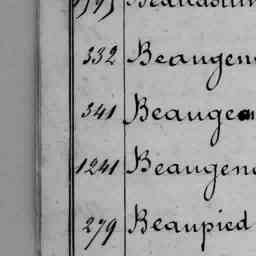 332 Beaugen
341 Beaugea
1241 Beaugen
279 Beaupied